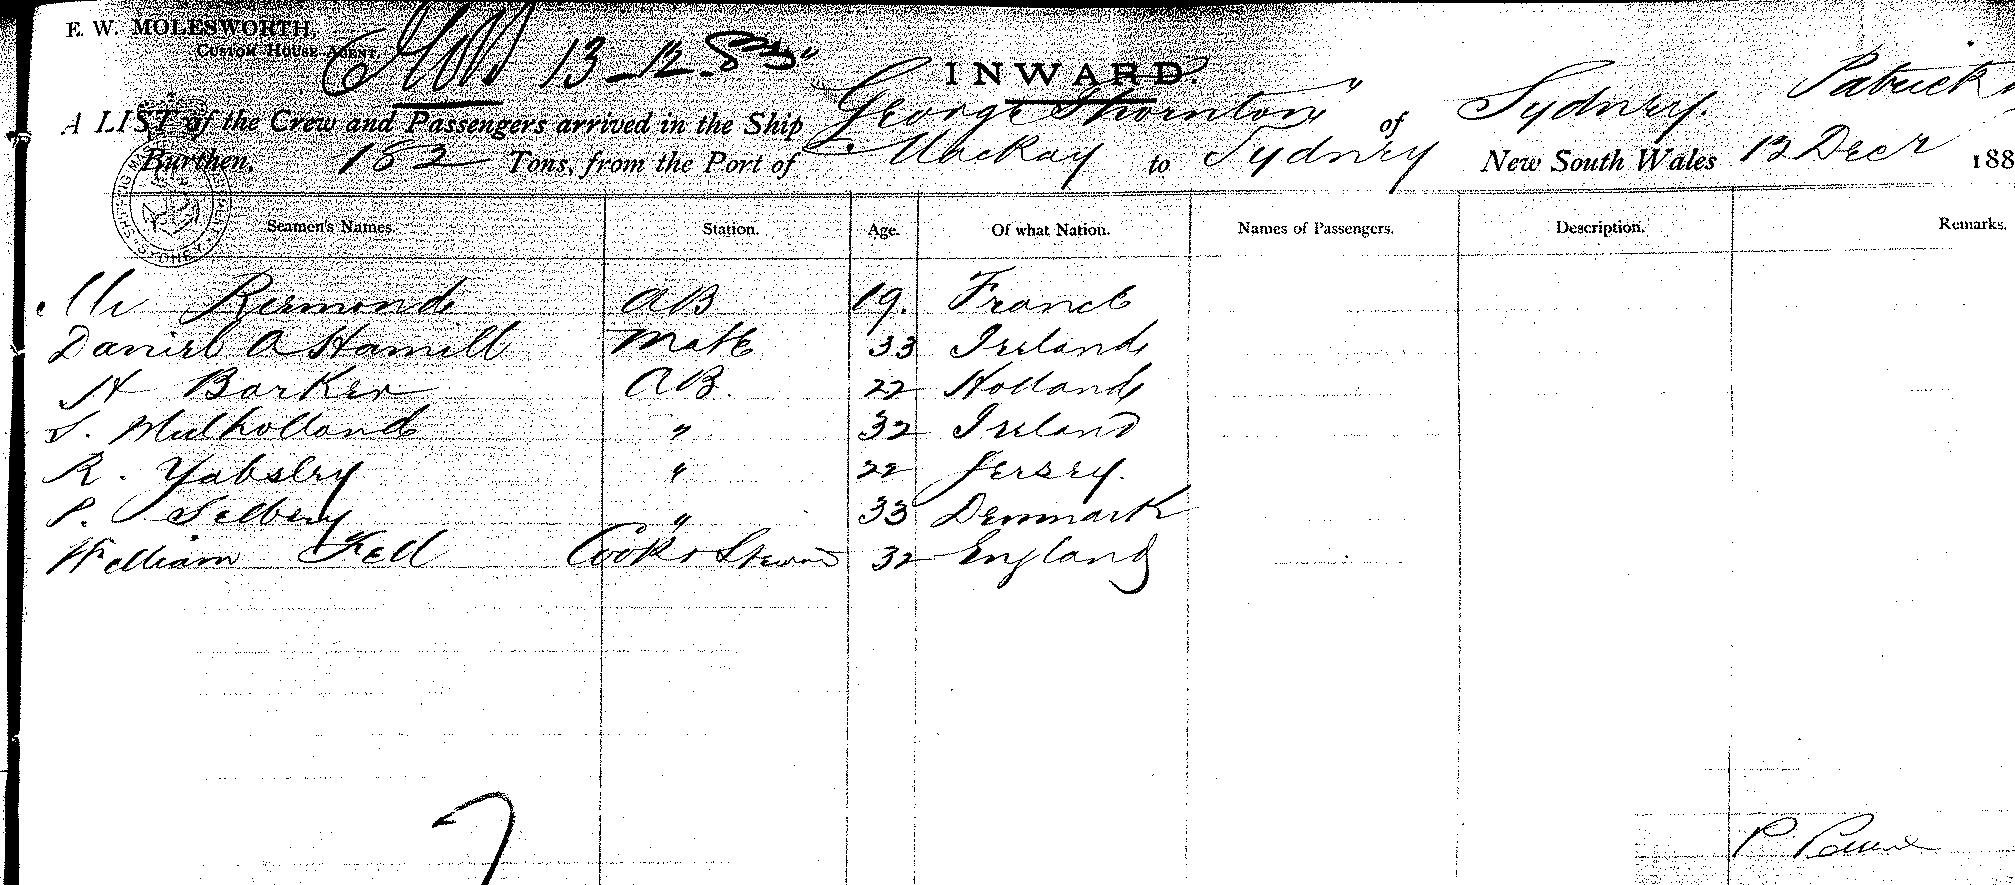 E. W. MOLESWORTH,
CUSTOM HOUSE AGENT
13-12-83
INWARD.
Patrick
A LIST of the Crew and Passengers arrived in the Ship "George Thornton" of Sydney.
Burthen, 152 Tons, from the Port of Mackay to Sydney New South Wales 12 Decr 188
Seamen's Names. Station. Age. Of what Nation. Names of Passengers. Description. Remarks.
Remond AB 19. France
Daniel A Hamill Mate 33 Ireland
H Barker AB. 22 Holland
S. Mulholland " 32 Ireland
R. Yabsley " 22 Jersey.
P. Selbery " 33 Denmark
William Fell Cook & Steward 32 England
7
P.